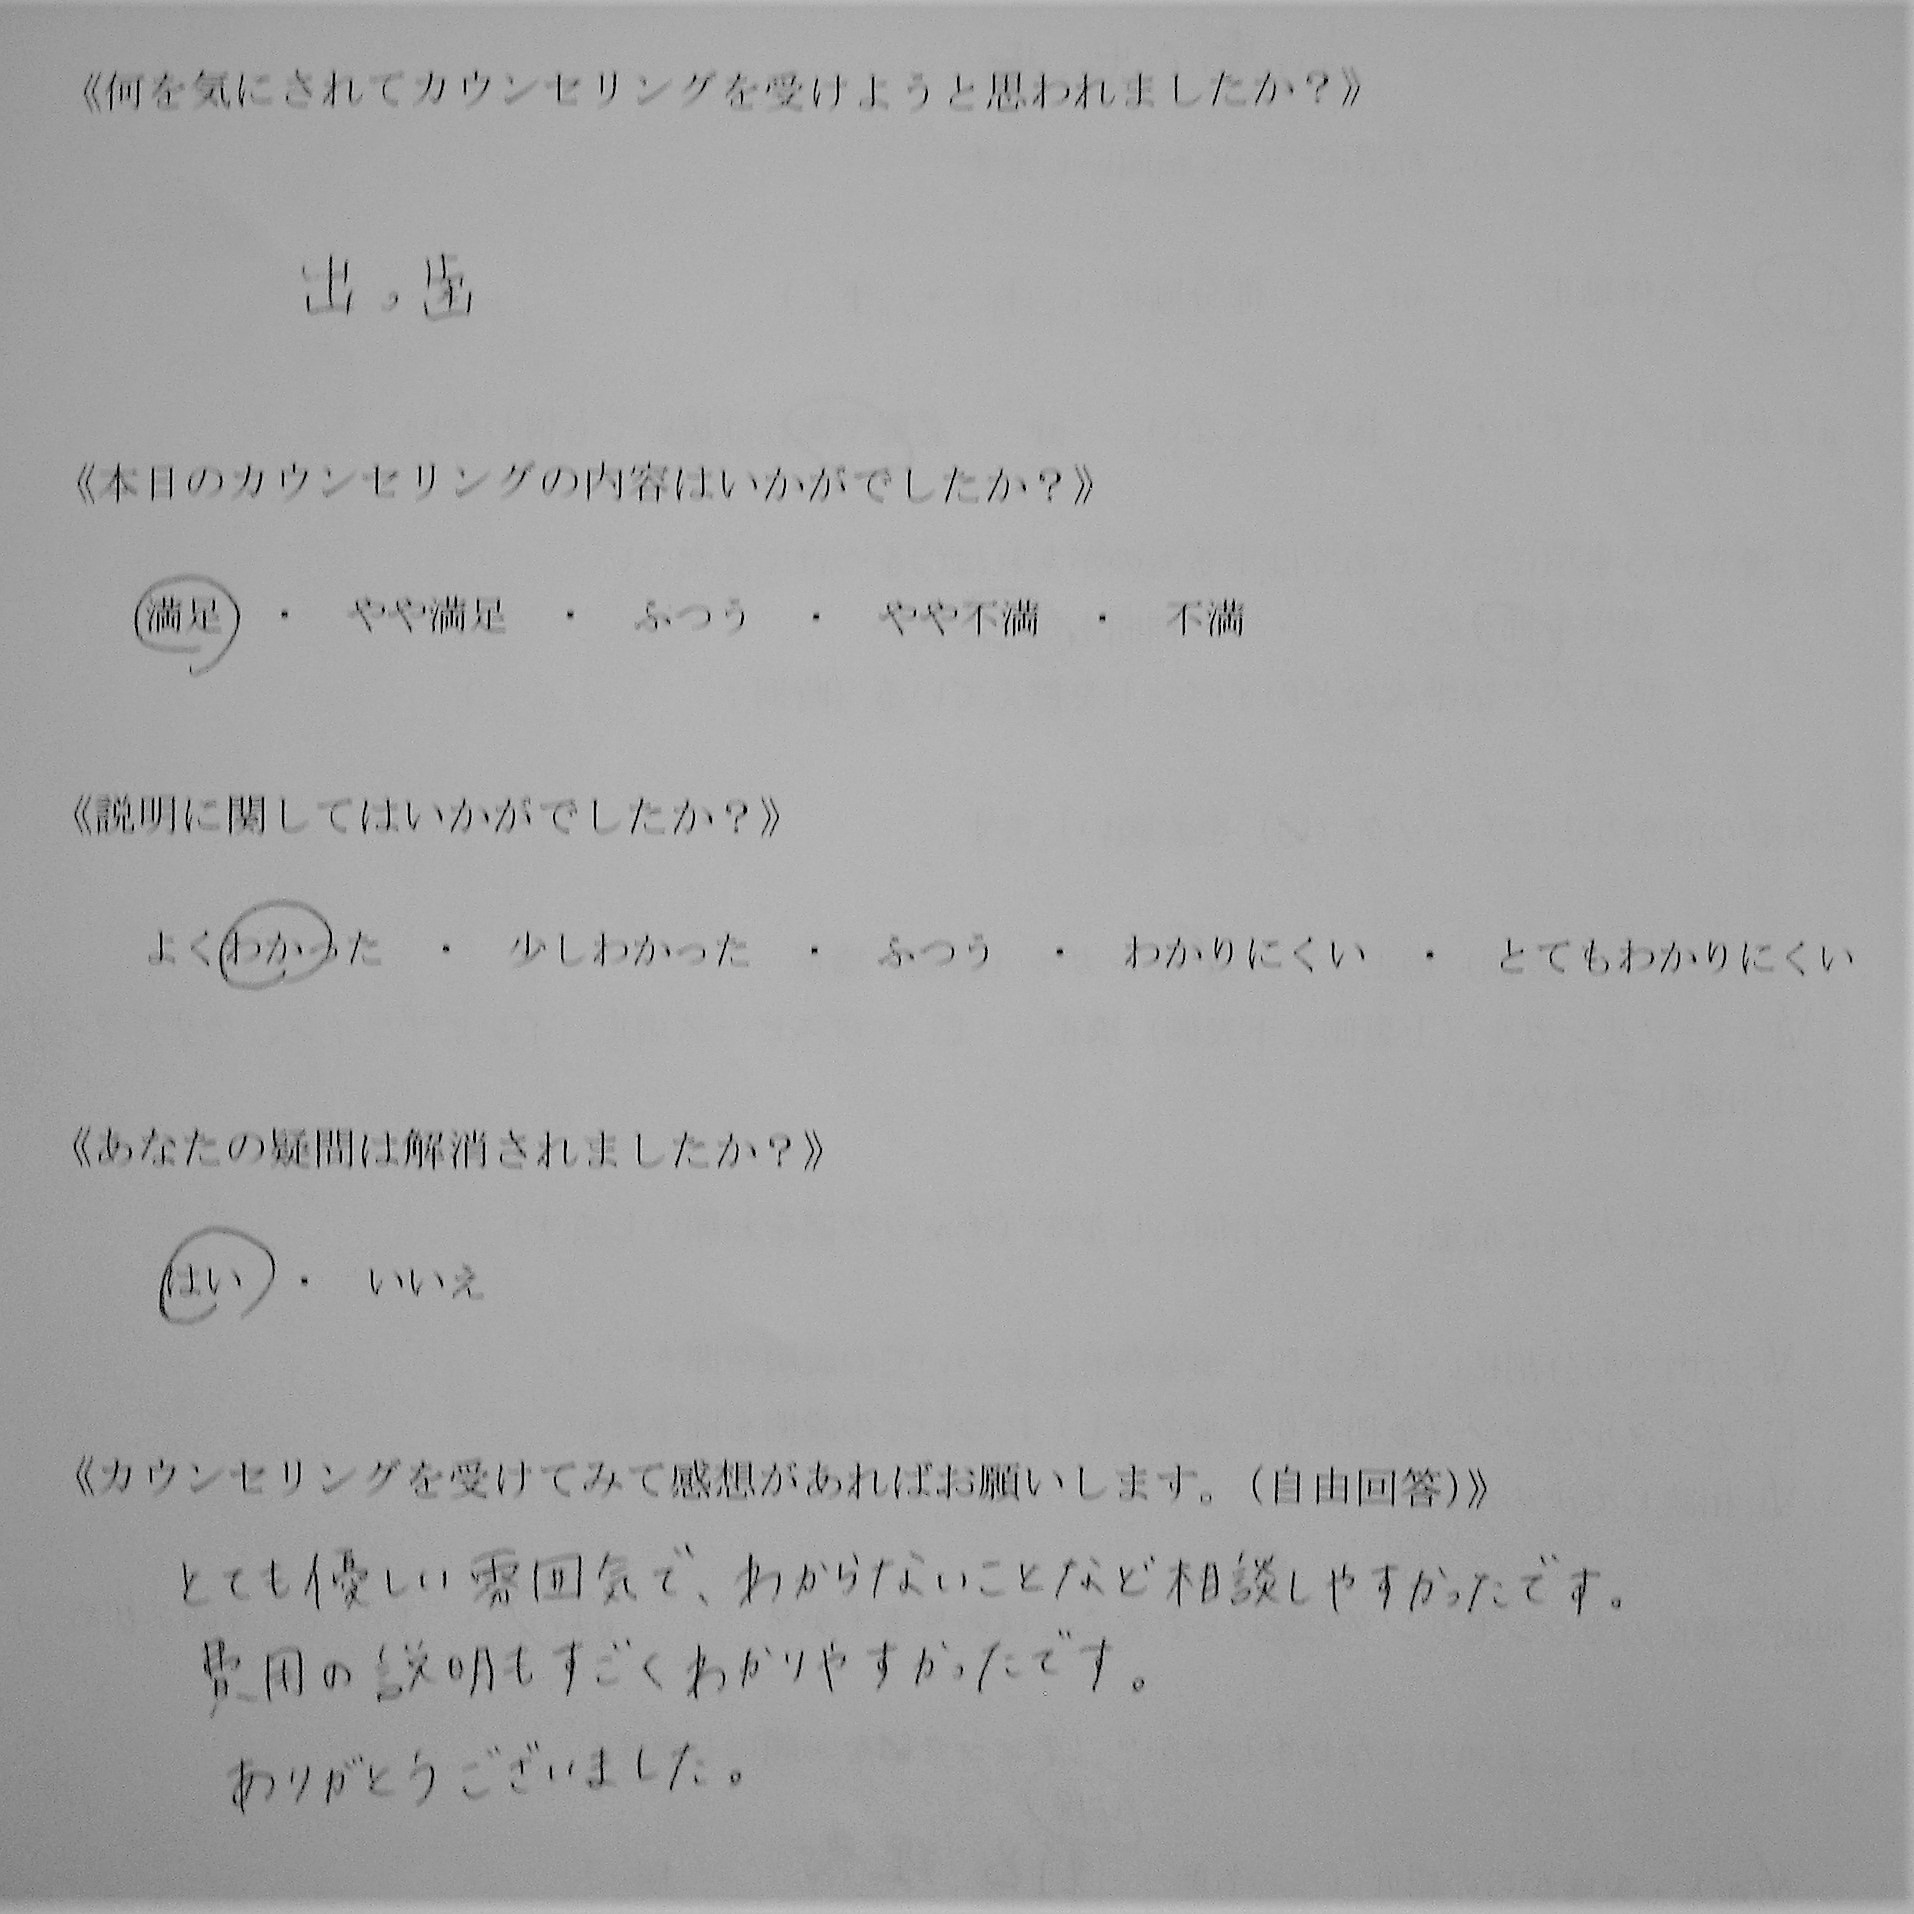 《何を気にされてカウンセリングを受けようと思われましたか？》
出っ歯
《本日のカウンセリングの内容はいかがでしたか？》
満足 ・ やや満足 ・ ふつう ・ やや不満 ・ 不満
《説明に関してはいかがでしたか？》
よくわかった ・ 少しわかった ・ ふつう ・ わかりにくい ・ とてもわかりにくい
《あなたの疑問は解消されましたか？》
はい ・ いいえ
《カウンセリングを受けてみて感想があればお願いします。（自由回答）》
とても優しい雰囲気で、わからないことなど相談しやすかったです。
費用の説明もすごくわかりやすかったです。
ありがとうございました。